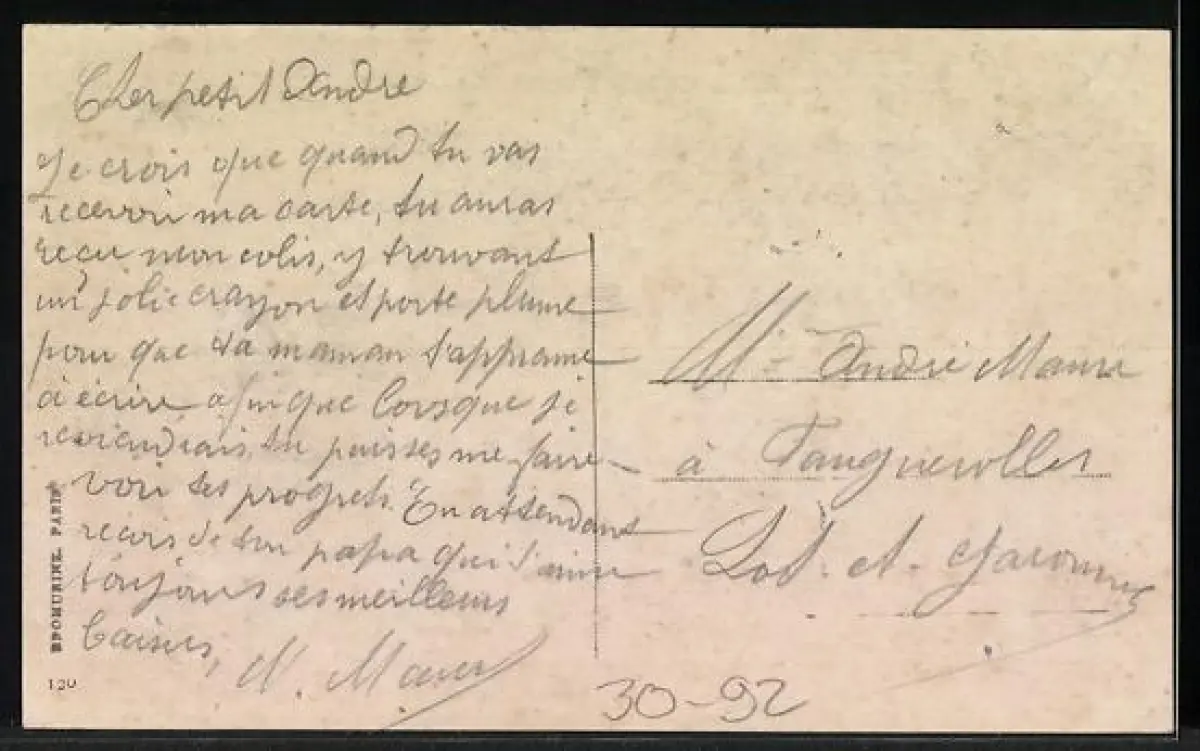 Cher petit André
Je crois que quand tu vas
recevoir ma carte, tu auras
recu mon colis, y trouvant
un jolie crayon et porte plume
pour que ta maman t'apprame
à écrire afin que lorsque je
reviendrais, tu puisses me faire
voir tes progrets. En attendant
recois de ton papa qui t'aime
toujours ses meilleurs
baisers,
Mr André Maure
à Fauguerolles
Lot. et. Garonne
BROMURINE PARIS
130
30-92